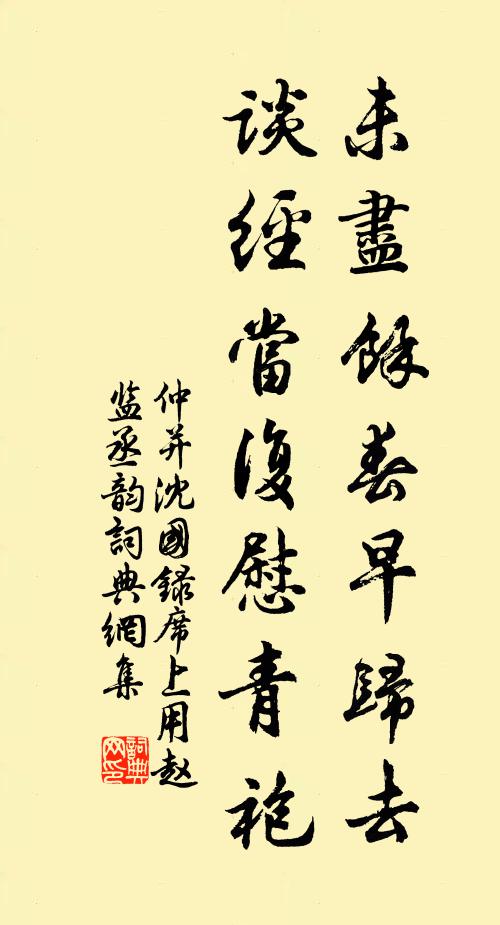 未盡餘春早歸去
談經當復慰青袍
仲并沈國録席上用赵
监丞韵詞典網集
詞典網印